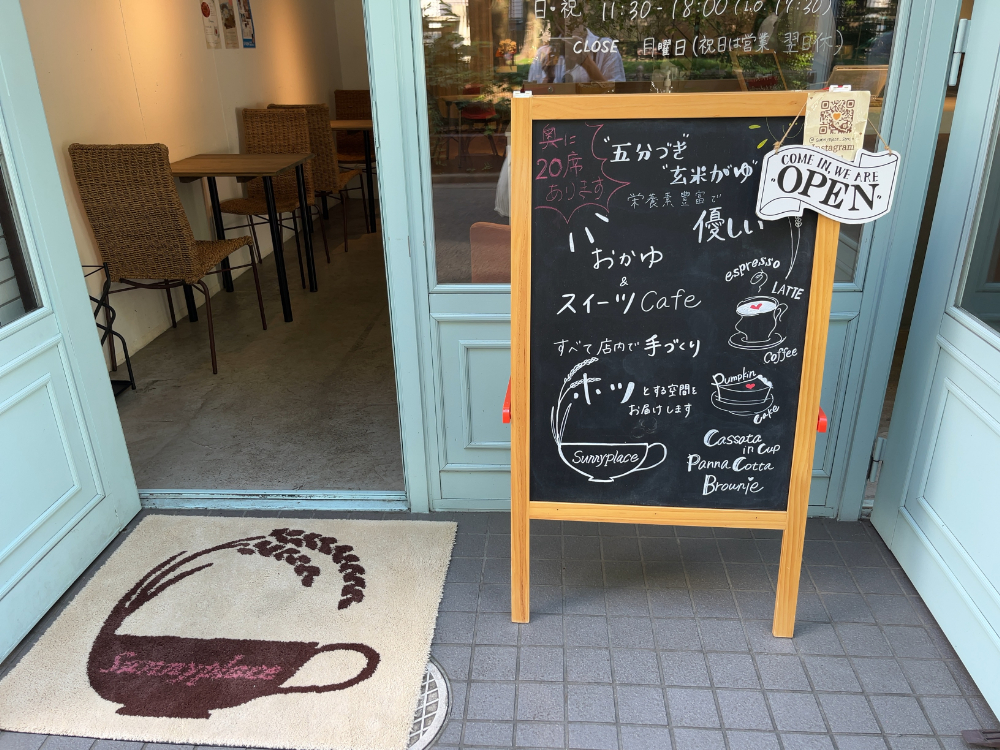 日・祝 11:30-18:00(L.O. 17:30)
CLOSE 月曜日(祝日は営業 翌日休)
Instagram
COME IN, WE ARE
OPEN
奥に
20席
あります
"五分づき
"玄米がゆ"
栄養素豊富で
優しい
おかゆ
&
スイーツ Cafe
すべて店内で 手づくり
ホッとする空間を
お届けします
Sunnyplace
espresso
LATTE
Coffee
Pumpkin
Cake
Cassata
in Cup
Panna Cotta
Brownie
Sunnyplace